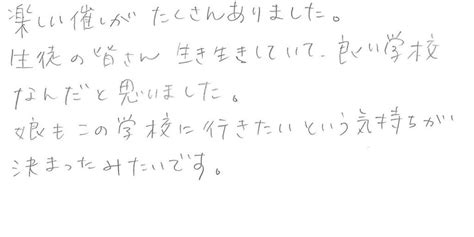 楽しい催しがたくさんありました。
生徒の皆さん生き生きしていて、良い学校
なんだと思いました。
娘もこの学校に行きたいという気持ちが
決まったみたいです。